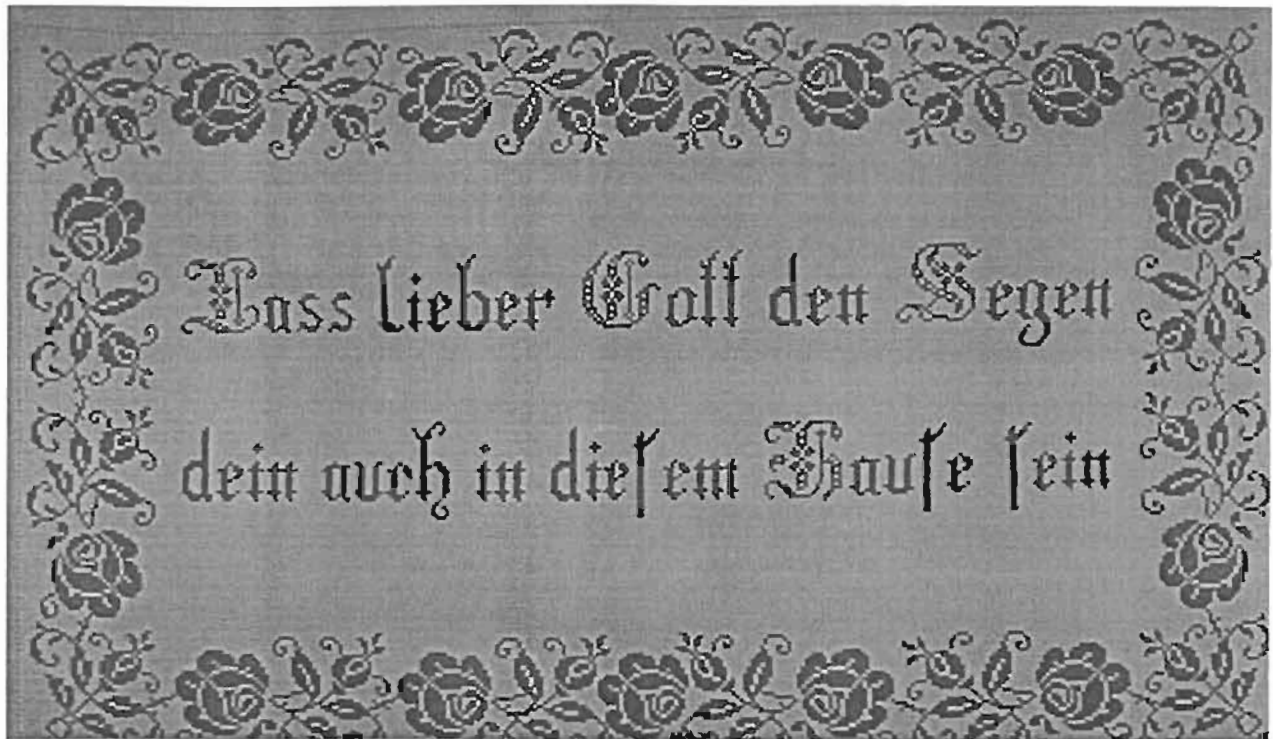 Lass lieber Gott den Segen
dein auch in dieſem Hauſe ſein